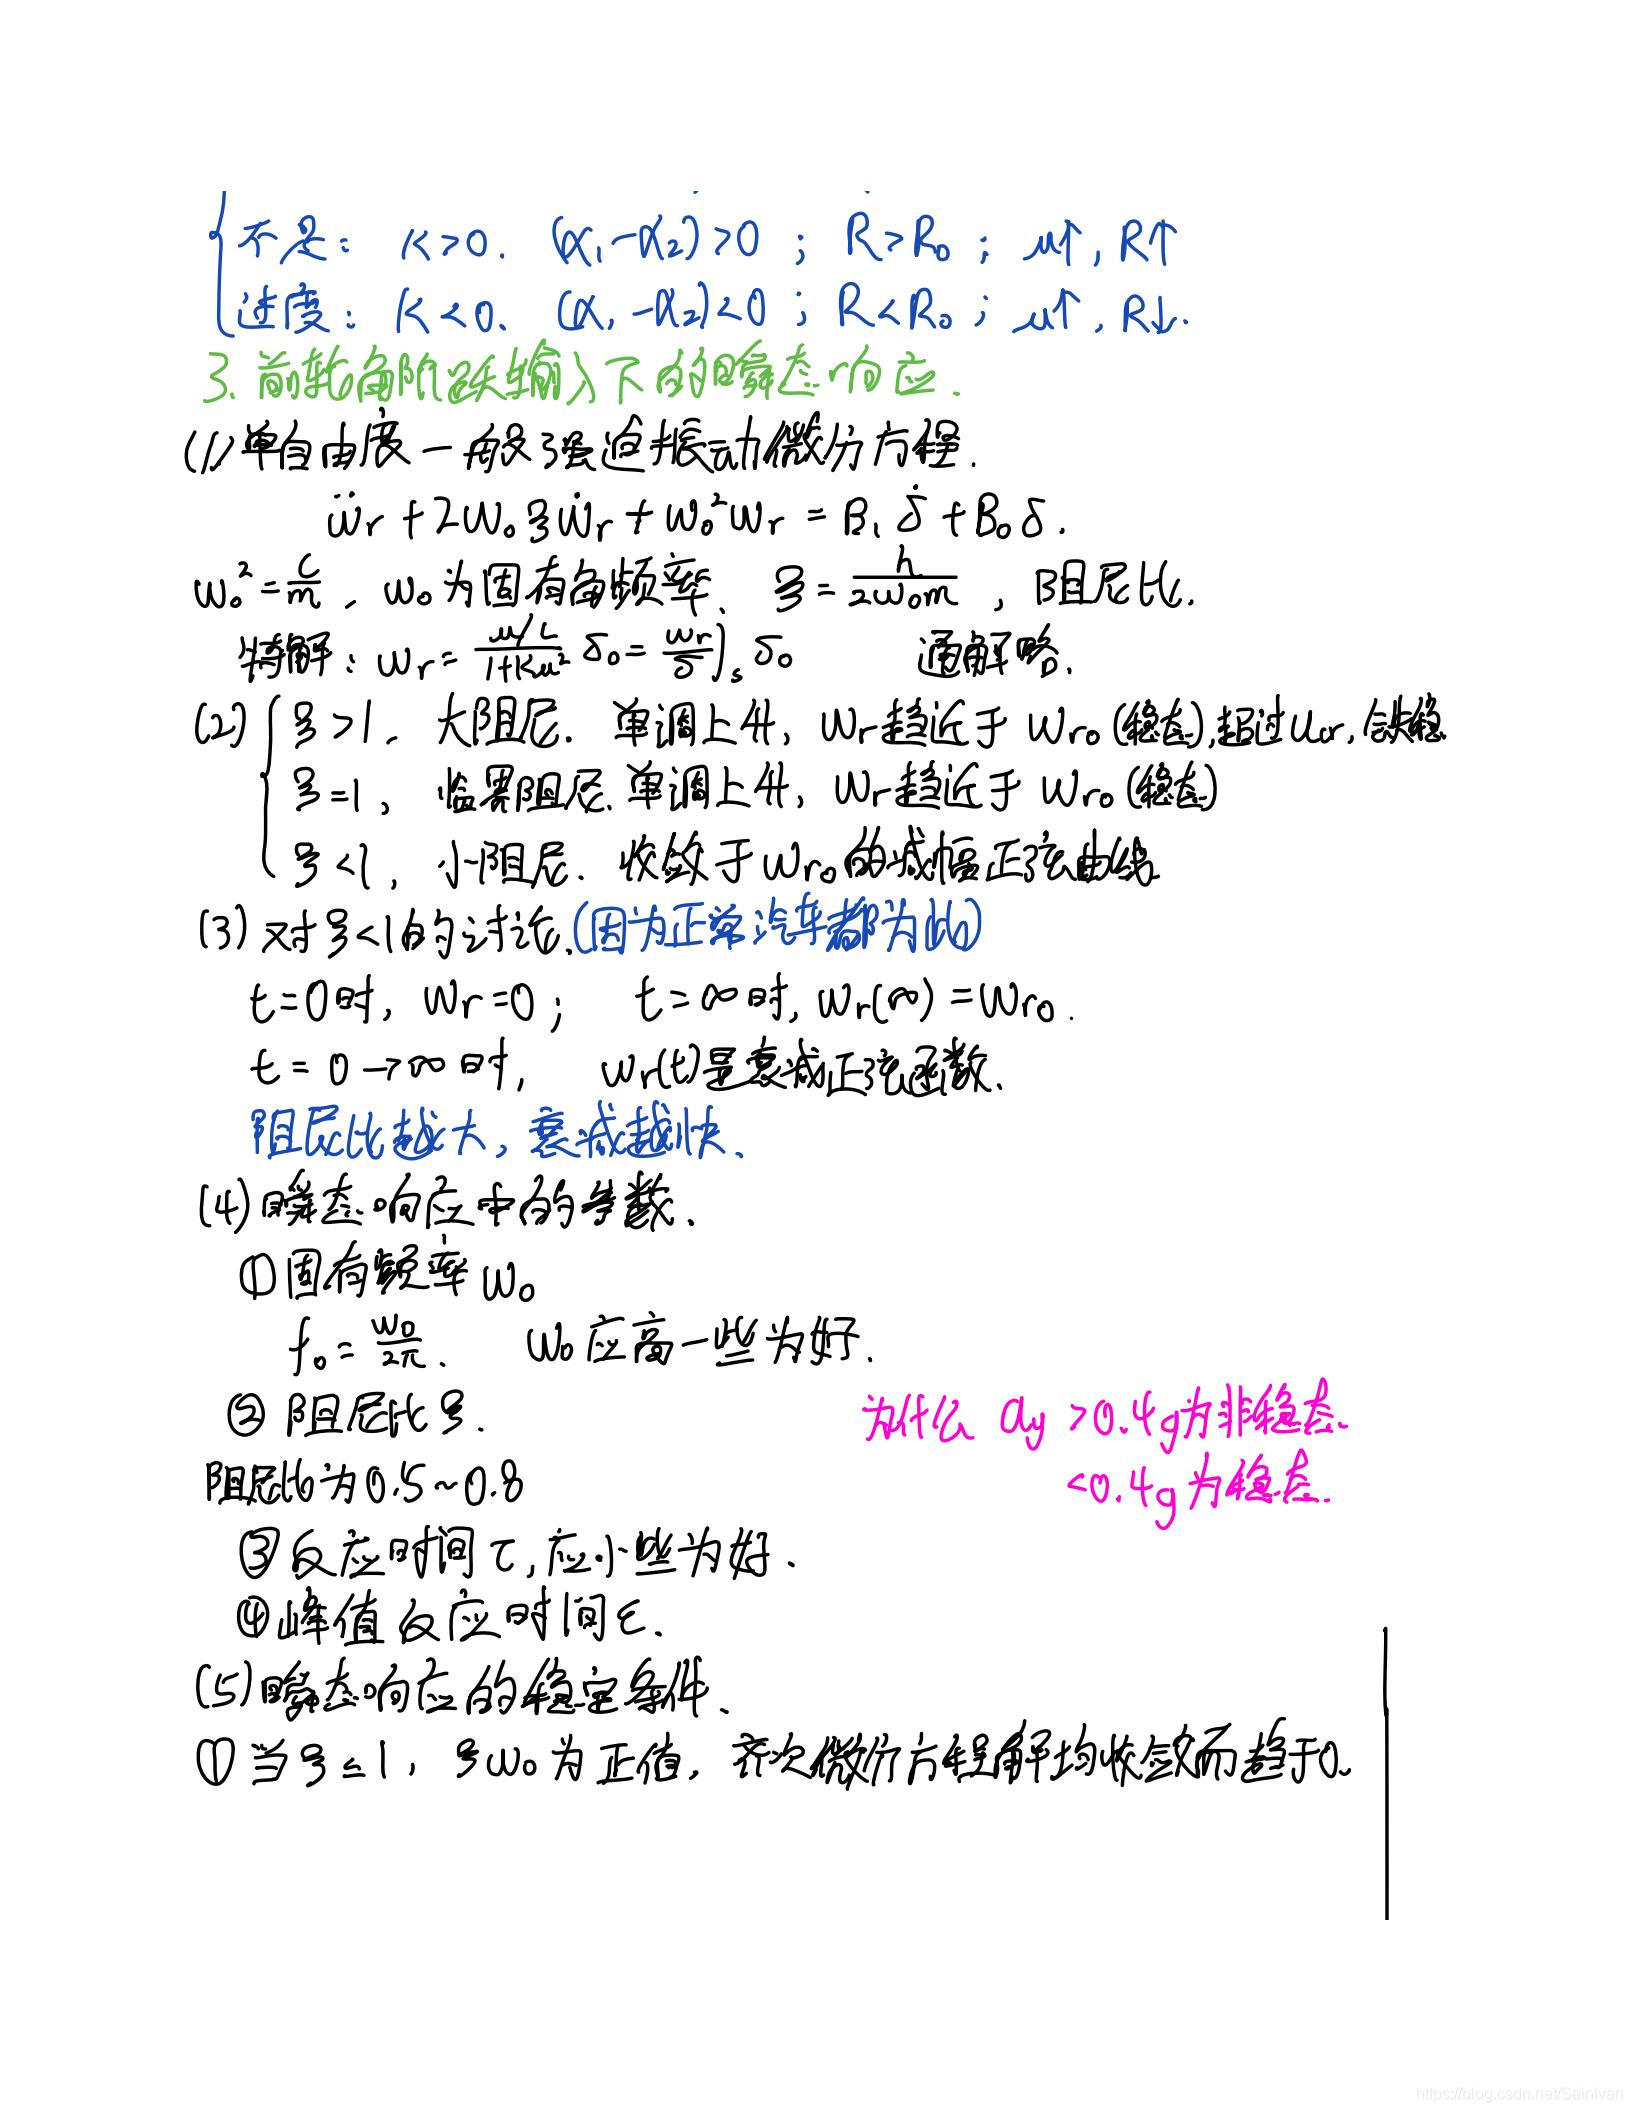 不是: K>0. (α₁-α₂)>0 ; R>R₀ ; u↑, R↑
过度: K<0. (α₁-α₂)<0 ; R<R₀ ; u↑, R↓.
3. 前轮角阶跃输入下的瞬态响应.
(1) 单自由度一般强迫振动微分方程.
ẅr + 2w₀ξẇr + w₀²wr = B₁δ̇ + B₀δ.
w₀² = c/m , w₀为固有角频率. ξ = h/2w₀m , 阻尼比.
特解: wr = (u/L)/(1+Ku²) δ₀ = wr/δ)s δ₀ 通解略.
(2) ξ>1, 大阻尼. 单调上升, wr趋近于 wr₀ (稳态),超过ucr, 会失稳
ξ=1, 临界阻尼. 单调上升, wr趋近于 wr₀ (稳态)
ξ<1, 小阻尼. 收敛于wr₀的减幅正弦曲线
(3) 对ξ<1的讨论.(因为正常汽车都为此)
t=0时, wr=0; t=∞时, wr(∞)=wr₀.
t=0→∞时, wr(t)是衰减正弦函数.
阻尼比越大, 衰减越快.
(4) 瞬态响应中的参数.
①固有频率 w₀
f₀ = w₀/2π. w₀应高一些为好.
② 阻尼比ξ.
为什么 ay >0.4g为非稳态.
阻尼比为0.5~0.8
<0.4g为稳态.
③反应时间τ,应小些为好.
④峰值反应时间ε.
(5)瞬态响应的稳定条件.
①当ξ≤1, ξw₀为正值, 齐次微分方程解均收敛而趋于0.
https://blog.csdn.net/SeinIvan